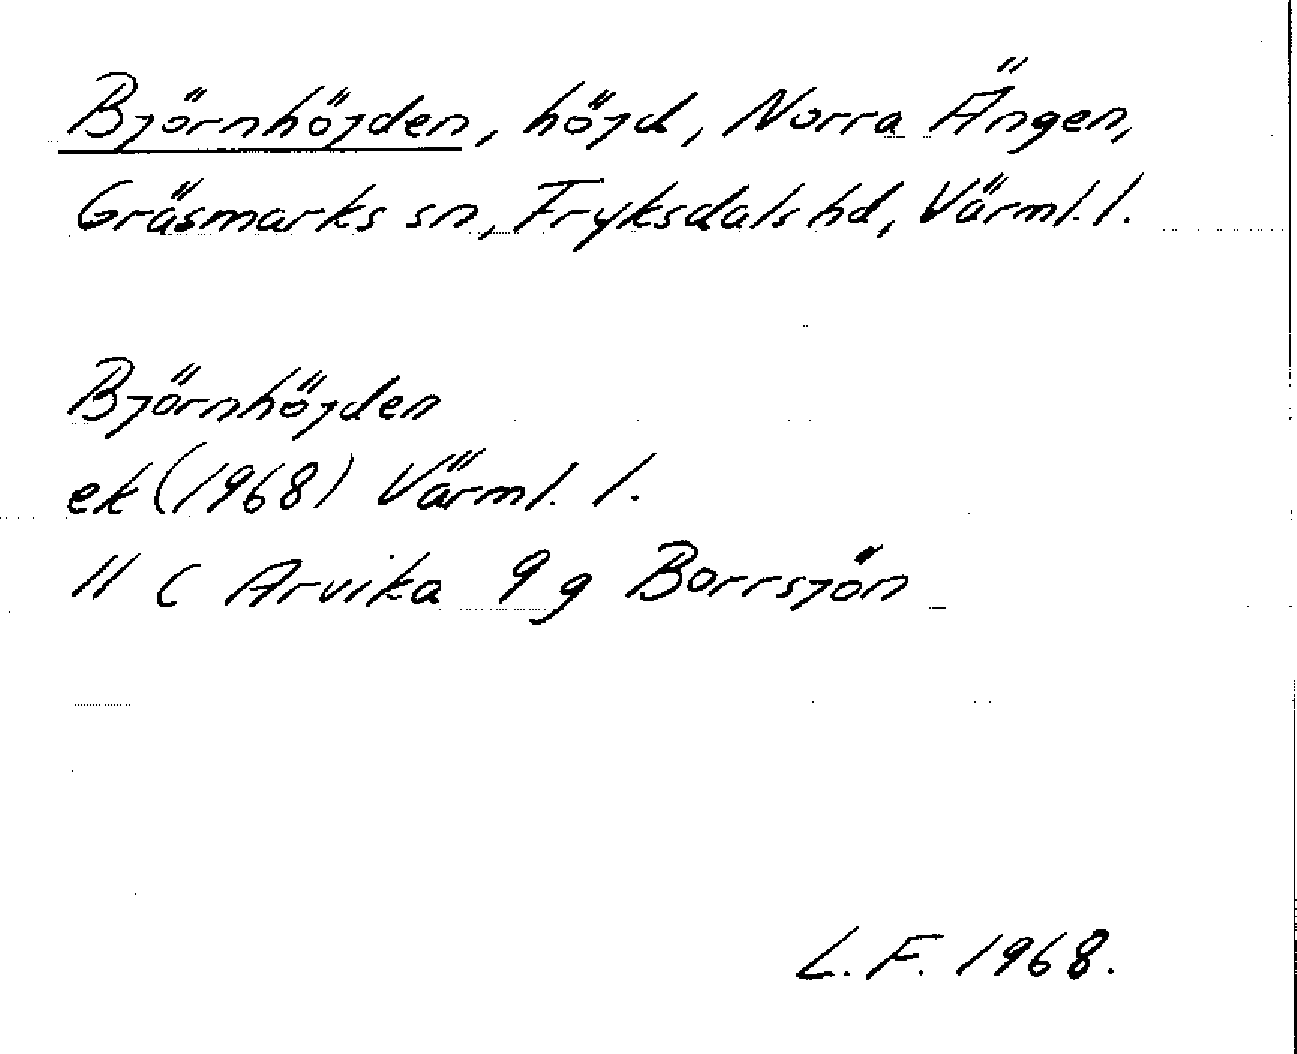 Björnhöjden, höjd, Norra Ängen,
Gräsmarks sn, Fryksdals hd, Värml. l.
Björnhöjden
ek (1968) Värml. l.
11 C Arvika 9 g Borrsjön
L. F. 1968.